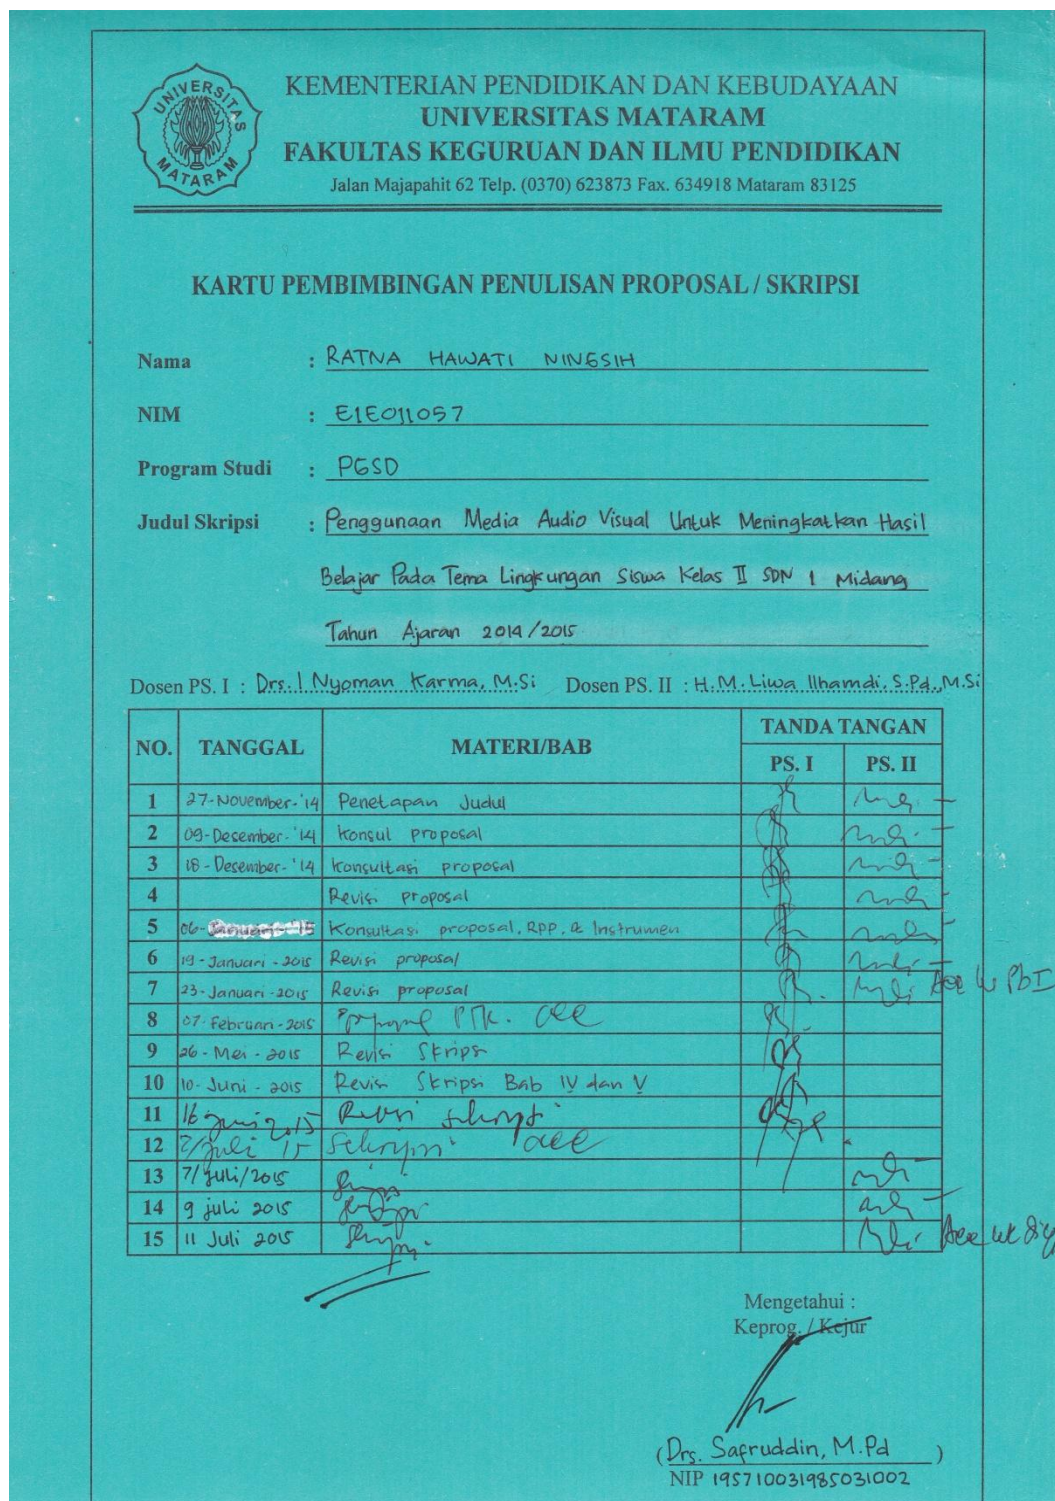 UNIVERSITAS MATARAM
KEMENTERIAN PENDIDIKAN DAN KEBUDAYAAN
UNIVERSITAS MATARAM
FAKULTAS KEGURUAN DAN ILMU PENDIDIKAN
Jalan Majapahit 62 Telp. (0370) 623873 Fax. 634918 Mataram 83125
KARTU PEMBIMBINGAN PENULISAN PROPOSAL / SKRIPSI
Nama : RATNA HAWATI NINGSIH
NIM : E1E011057
Program Studi : PGSD
Judul Skripsi : Penggunaan Media Audio Visual Untuk Meningkatkan Hasil
Belajar Pada Tema Lingkungan Siswa Kelas II SDN 1 Midang
Tahun Ajaran 2014/2015
Dosen PS. I : Drs. I Nyoman Karma, M.Si Dosen PS. II : H.M. Liwa Ilhamdi, S.Pd., M.Si
NO. TANGGAL MATERI/BAB TANDA TANGAN
PS. I PS. II
1 27-November-'14 Penetapan Judul
2 09-Desember-'14 Konsul proposal
3 18-Desember-'14 Konsultasi proposal
4 Revisi proposal
5 06-Januari-'15 Konsultasi proposal, RPP, & Instrumen
6 19-Januari-2015 Revisi proposal
7 23-Januari-2015 Revisi proposal Acc
8 07-Februari-2015 Proposal PTK. acc
9 26-Mei-2015 Revisi Skripsi
10 10-Juni-2015 Revisi Skripsi Bab IV dan V
11 16 Juni 2015 Revisi skripsi
12 7/juli 15 Skripsi acc
13 7/juli/2015 Skripsi
14 9 juli 2015 Skripsi
15 11 Juli 2015 Skripsi Acc
Mengetahui :
Keprog. / Kejur
(Drs. Safruddin, M.Pd)
NIP 195710031985031002